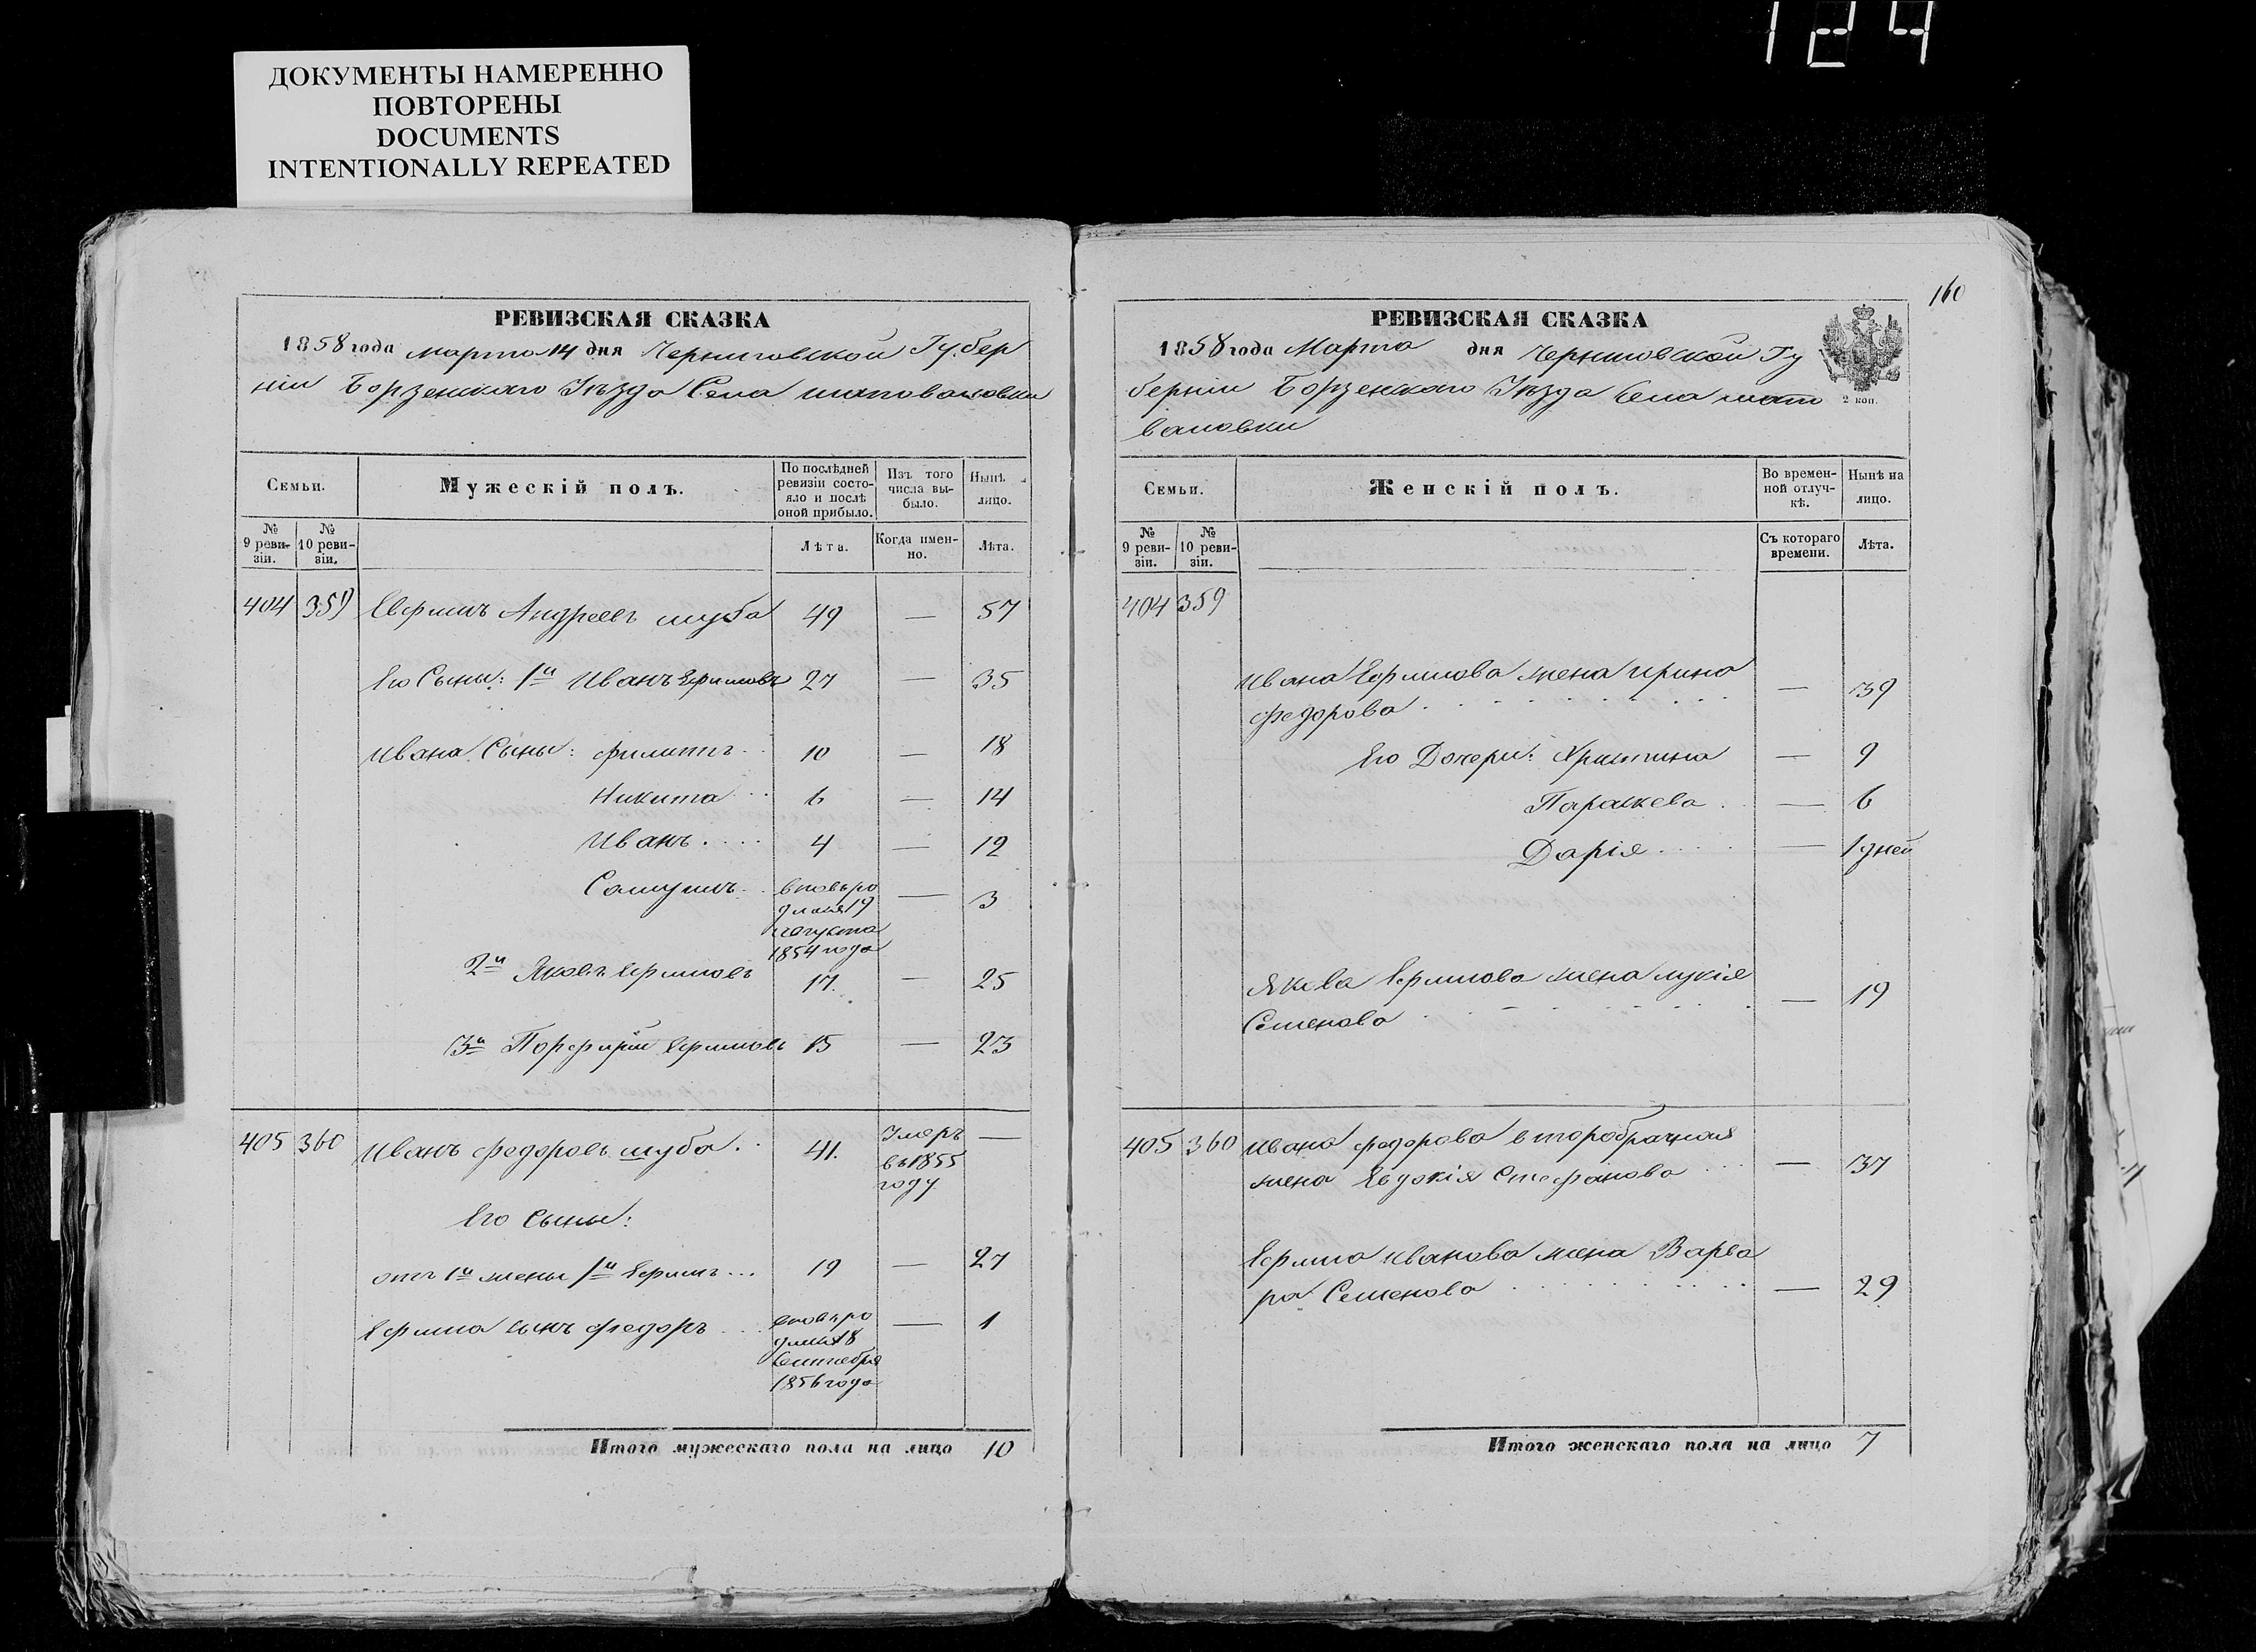 124
ДОКУМЕНТЫ НАМЕРЕННО
ПОВТОРЕНЫ
DOCUMENTS
INTENTIONALLY REPEATED
РЕВИЗСКАЯ СКАЗКА
1858 года Марта 14 дня Черниговской Губер
ніи Борзенскаго Уѣзда Села шаповаловки
Семьи.
Мужескій полъ.
По послѣдней ревизіи состояло и послѣ оной прибыло.
Изъ того числа выбыло.
Нынѣ лицо.
№ 9 ревизіи.
№ 10 ревизіи.
Лѣта.
Когда именно.
Лѣта.
404 359 Ефимъ Андреевъ шуба 49 — 57
Его Сыны: 1й Иванъ Ефимовъ 27 — 35
Ивана Сыны: филиппъ 10 — 18
Никита 6 — 14
Иванъ 4 — 12
Самуилъ вновь ро — 3
дился 19
августа
1854 года
2й Яковъ Ефимовъ 17 — 25
3й Порфирій Ефимовъ 15 — 23
405 360 Иванъ федоровъ шуба 41. Умеръ —
въ 1855
году
Его Сыны:
отъ 1й жены 1й Ефимъ 19 — 27
Ефима сынъ федоръ вновь ро — 1
дился 18
Сентября
1856 года
Итого мужескаго пола на лицо 10
160
РЕВИЗСКАЯ СКАЗКА
1858 года Марта дня Черниговской Гу
берніи Борзенскаго Уѣзда Села шапо
валовки
2 коп.
Семьи.
Женскій полъ.
Во временной отлучкѣ.
Нынѣ на лицо.
№ 9 ревизіи.
№ 10 ревизіи.
Съ котораго времени.
Лѣта.
404 359
Ивана Ефимова жена ирина
федорова — 39
Его Дочери: Христина — 9
Параскева — 6
Дарія — 1 дней
Якова Ефимова жена лукія
Семенова — 19
405 360 Ивана федорова второбрачная
жена Евдокія Стефанова — 37
Ефима иванова жена Варва
ра Семенова — 29
Итого женскаго пола на лицо 7